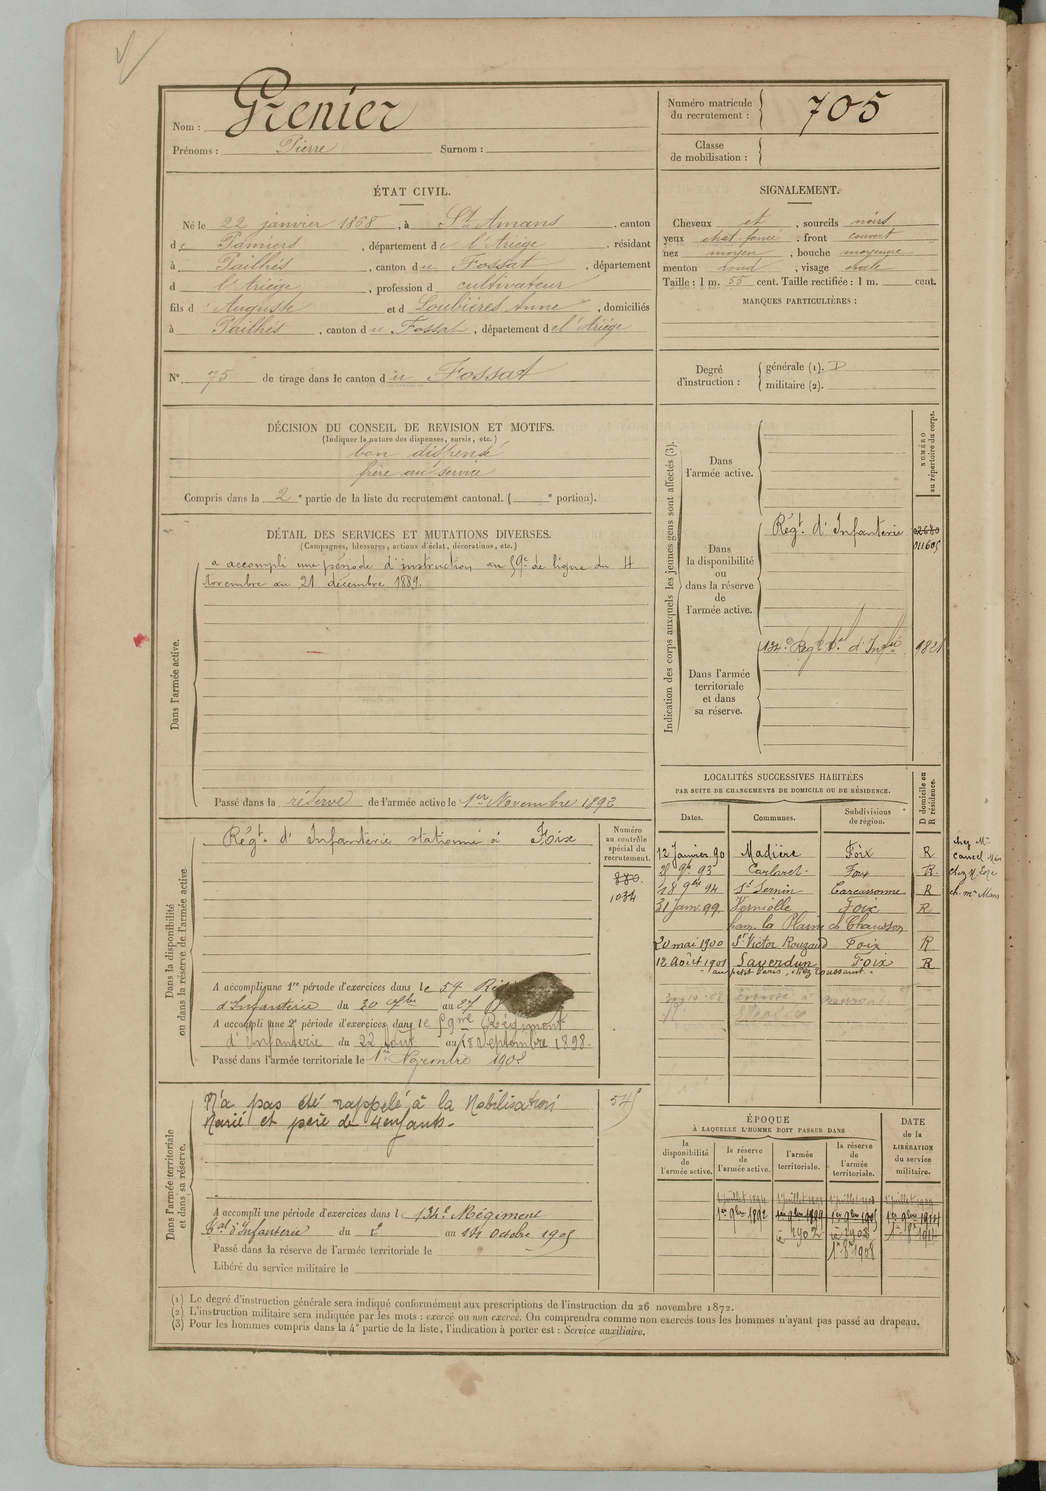 Nom : Grenier
Prénoms : Pierre Surnom :
Numéro matricule du recrutement : 705
Classe de mobilisation :
ÉTAT CIVIL.
Né le 22 janvier 1868, à St Amans, canton
de Pamiers, département de l'Ariège, résidant
à Pailhès, canton du Fossat, département
d l'Ariège, profession d cultivateur
fils d'Auguste et d Loubières Anne, domiciliés
à Pailhès, canton du Fossat, département de l'Ariège
N° 75 de tirage dans le canton du Fossat
SIGNALEMENT.
Cheveux et, sourcils noirs
yeux chat foncé, front couvert
nez moyen, bouche moyenne
menton rond, visage ovale
Taille : 1 m. 55 cent. Taille rectifiée : 1 m. cent.
MARQUES PARTICULIÈRES :
Degré d'instruction : générale (1). D
militaire (2).
DÉCISION DU CONSEIL DE REVISION ET MOTIFS.
(Indiquer la nature des dispenses, sursis, etc.)
bon dispensé
frère au service
Compris dans la 2e partie de la liste du recrutement cantonal. ( e portion).
DÉTAIL DES SERVICES ET MUTATIONS DIVERSES.
(Campagnes, blessures, actions d'éclat, décorations, etc.)
Dans l'armée active.
a accompli une période d'instruction au 59e de ligne du 4
novembre au 21 décembre 1889.
Passé dans la réserve de l'armée active le 1er Novembre 1892
Indication des corps auxquels les jeunes gens sont affectés (3).
NUMÉRO au répertoire du corps.
Dans l'armée active.
Dans la disponibilité ou dans la réserve de l'armée active.
Régt d'Infanterie
Dans l'armée territoriale et dans sa réserve.
134e Régt tal d'Infie
LOCALITÉS SUCCESSIVES HABITÉES
PAR SUITE DE CHANGEMENTS DE DOMICILE OU DE RÉSIDENCE.
D domicile ou R résidence.
Dates. Communes. Subdivisions de région.
12 Janvier 90 Madière Foix R chez Mr
Carlaret Foix R
18 9bre 94 St Sernin Carcassonne R
31 janv. 99 Verniolle Foix R
ham. la Plaine ch Chausson
20 mai 1900 St Victor Rouzaud Foix R
12 Août 1901 Saverdun Foix R
au petit Paris, chez Toussaint.
Dans la disponibilité ou dans la réserve de l'armée active
Numéro au contrôle spécial du recrutement.
Régt d'Infanterie stationné à Foix
880.
1034
A accompli une 1re période d'exercices dans le 59
d'Infanterie du 30 7bre au 27
A accompli une 2e période d'exercices dans le 59me Régiment
d'Infanterie du 22 août au 18 Septembre 1898.
Passé dans l'armée territoriale le 1er Novembre 1902
Dans l'armée territoriale et dans sa réserve.
N'a pas été rappelé à la Mobilisation
Marié et père de 4 enfants.
A accompli une période d'exercices dans l 134e Régiment
tal d'Infanterie du 2 au 14 Octobre 1905
Passé dans la réserve de l'armée territoriale le
Libéré du service militaire le
ÉPOQUE
À LAQUELLE L'HOMME DOIT PASSER DANS
DATE de la LIBÉRATION du service militaire.
la disponibilité de l'armée active. la réserve de l'armée active. l'armée territoriale. la réserve de l'armée territoriale.
1er 9bre 1892 1er 9bre 1899 1er 9bre 1905 1er 9bre 1914
1902 1908
1908
(1) Le degré d'instruction générale sera indiqué conformément aux prescriptions de l'instruction du 26 novembre 1872.
(2) L'instruction militaire sera indiquée par les mots : exercé ou non exercé. On comprendra comme non exercés tous les hommes n'ayant pas passé au drapeau.
(3) Pour les hommes compris dans la 4e partie de la liste, l'indication à porter est : Service auxiliaire.